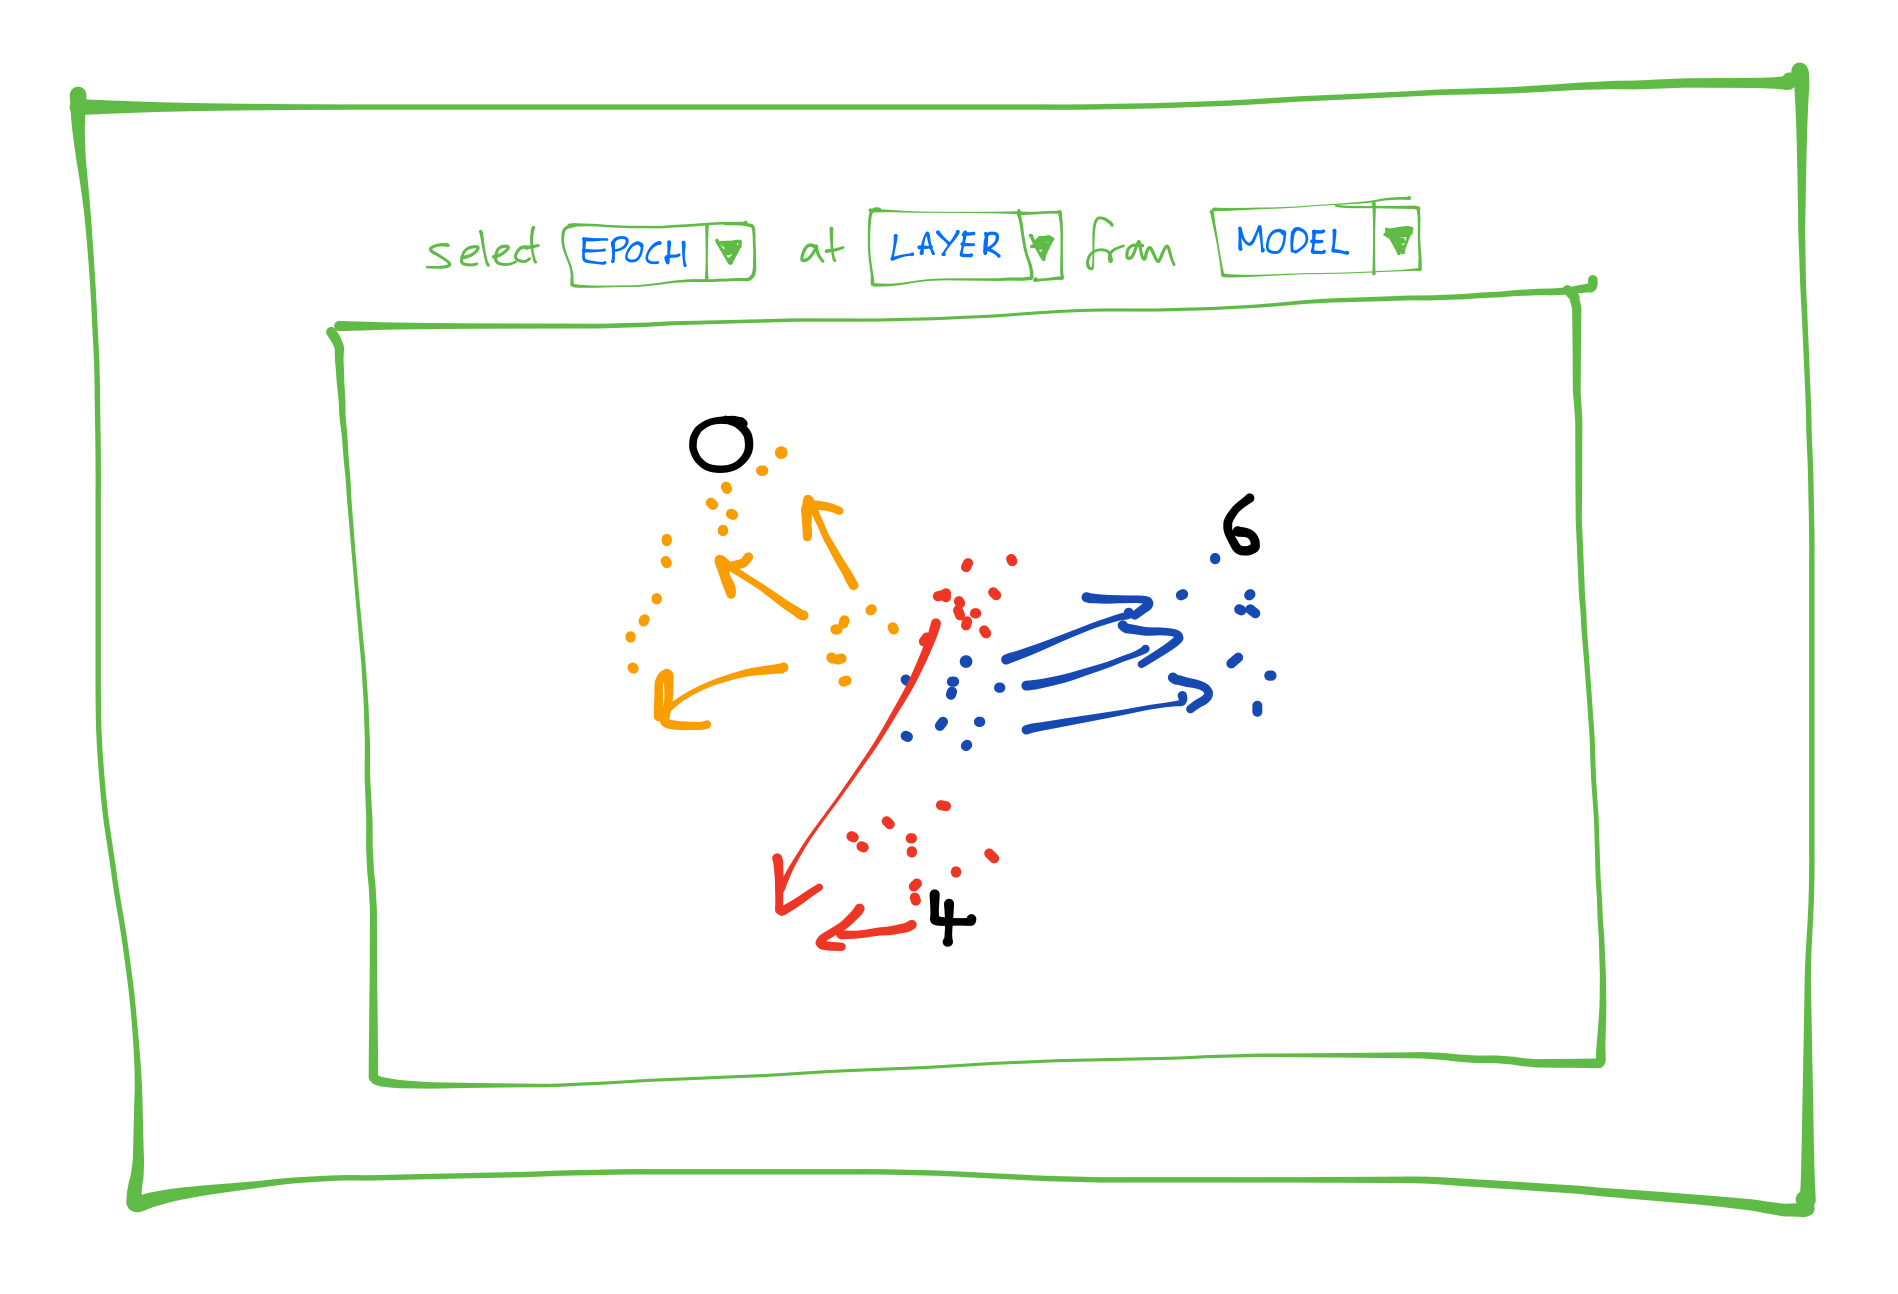 select EPOCH at LAYER from MODEL
0
6
4